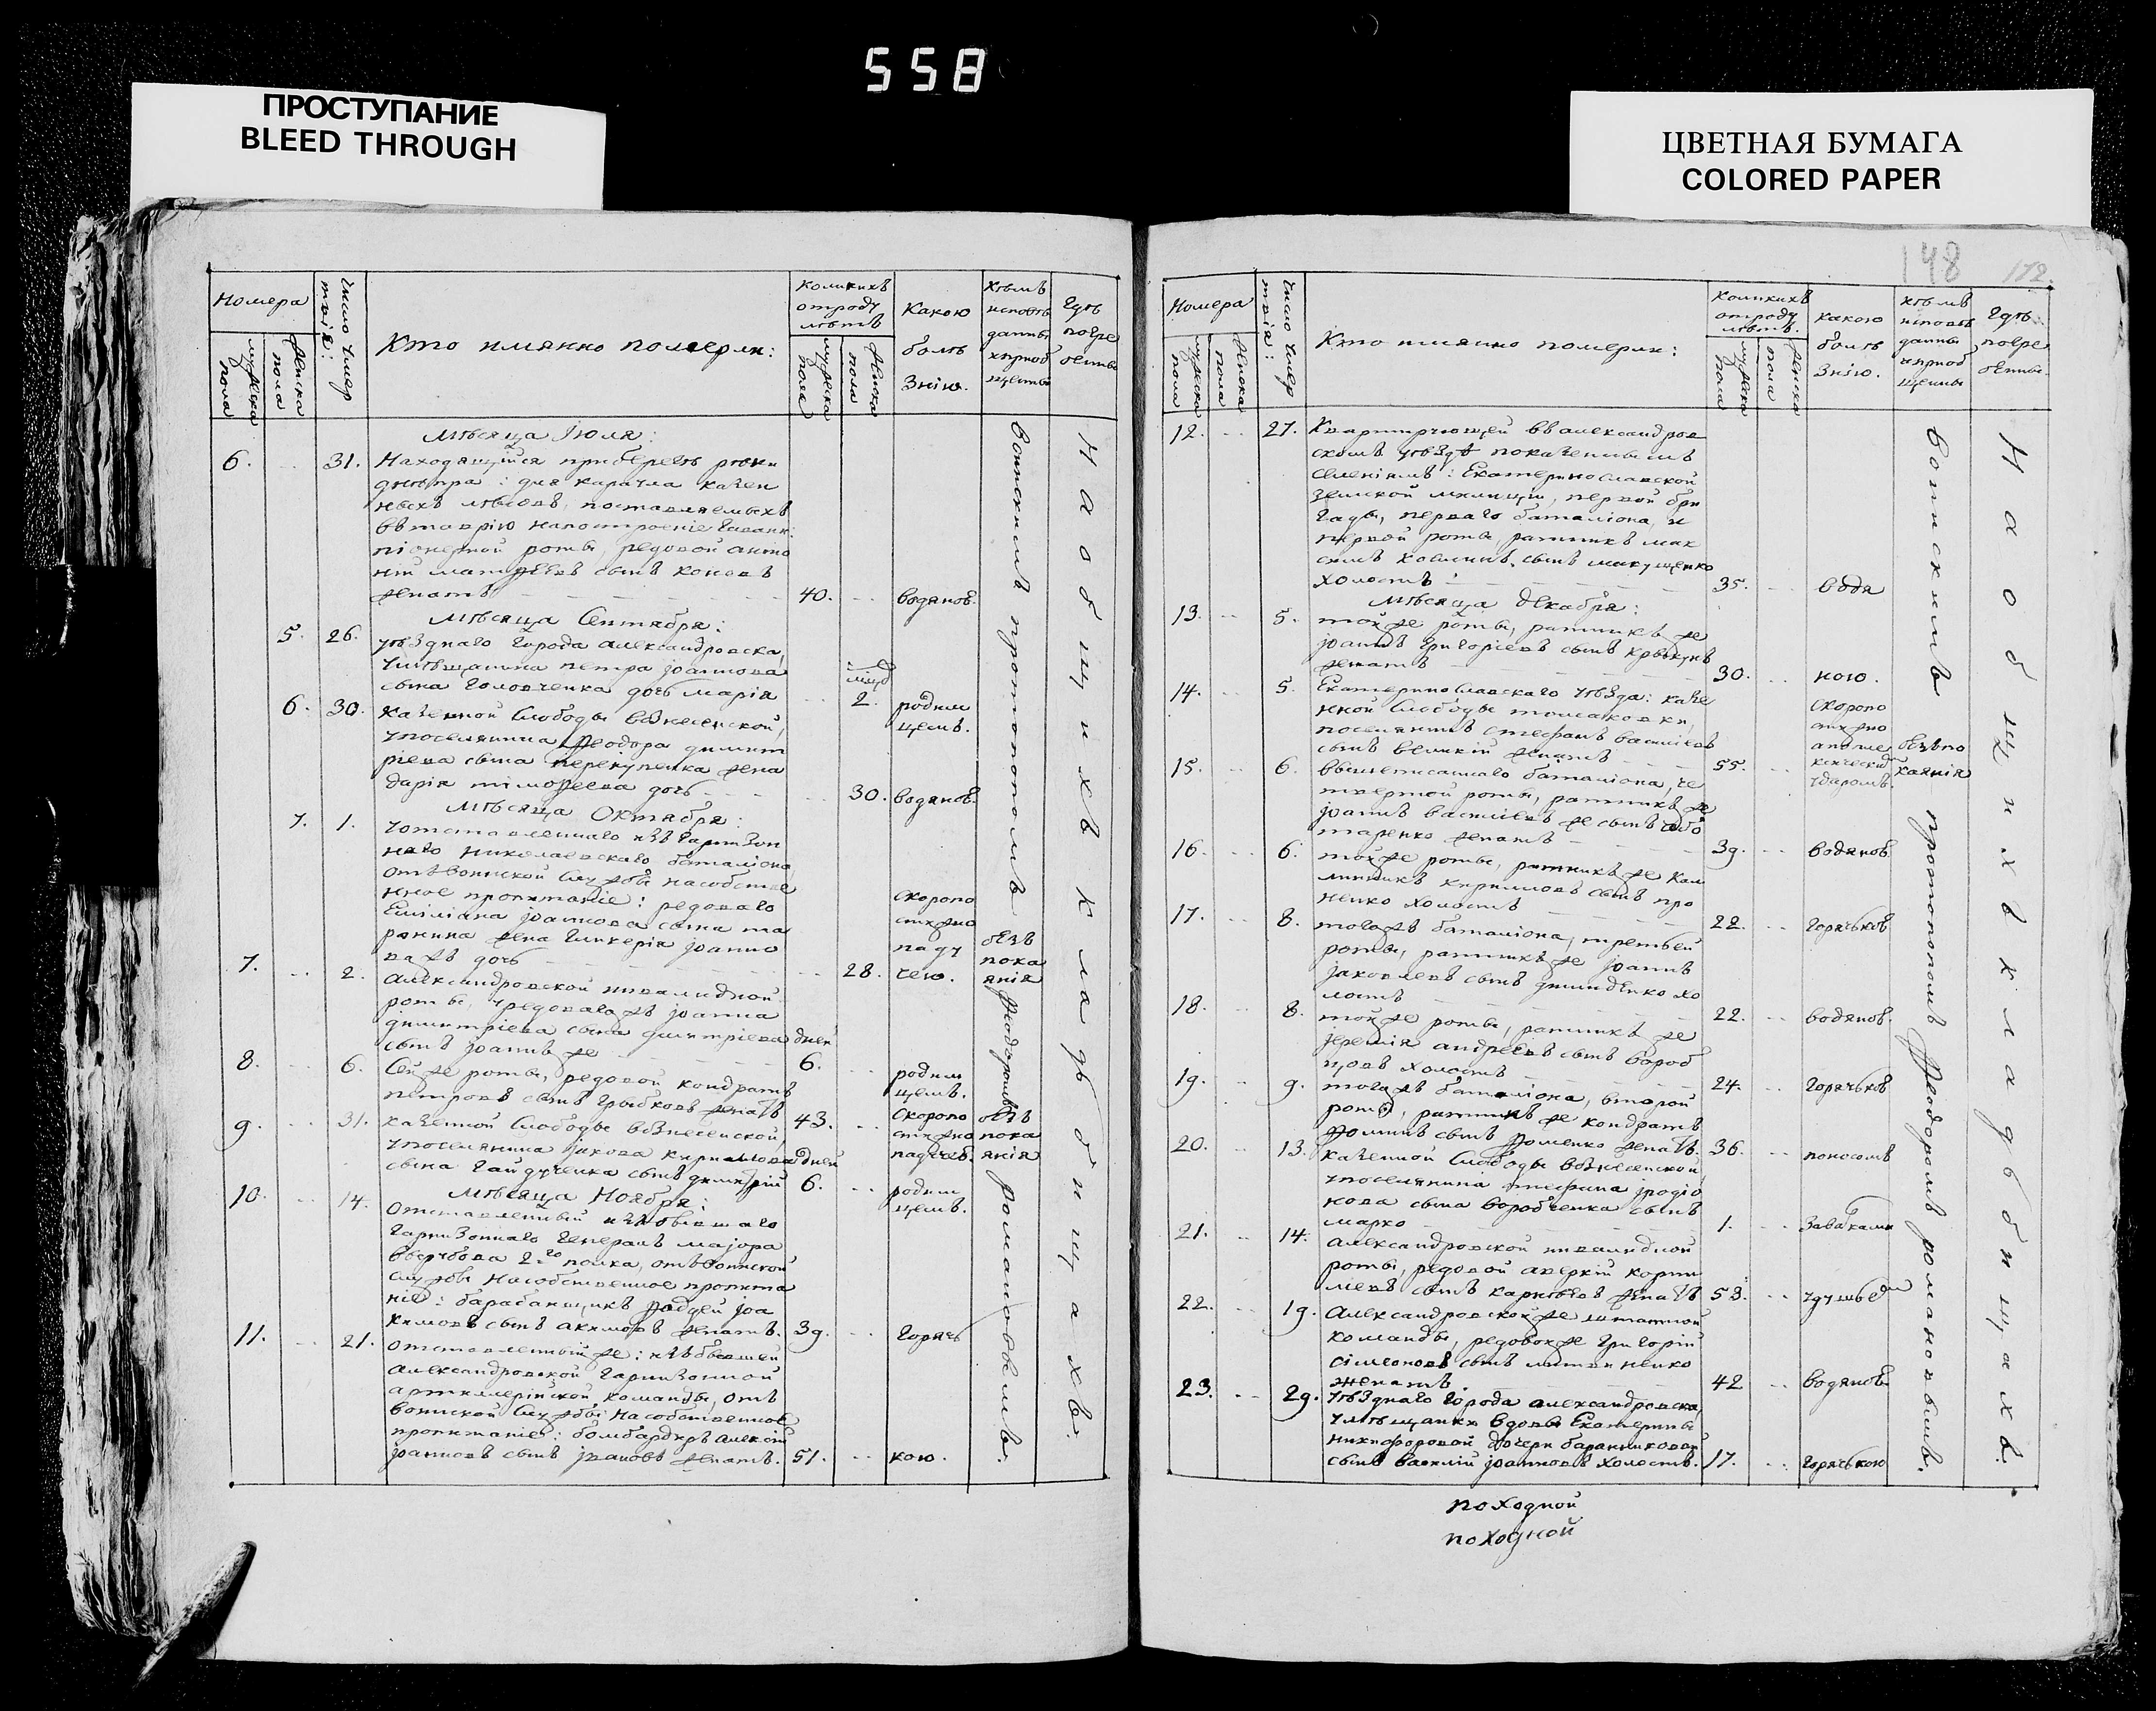 558
ПРОСТУПАНИЕ
BLEED THROUGH
ЦВЕТНАЯ БУМАГА
COLORED PAPER
Номера
мужеска пола
женска пола
число умертвія:
Кто имянно померли:
коликихъ отроду лѣтъ
мужеска пола
женска пола
какою болѣзнію.
кѣмъ исповѣданы и пріобщены
гдѣ погребены
Мѣсяца Іюля:
6. 31. Находящійся при берегѣ рѣки
днѣпра: для караула казен
ныхъ лѣсовъ, поставляемыхъ
въ таврію на построеніе
піонерной роты, редовой анто
ній матфеевъ сынъ коновъ
женатъ 40. водяною.
Мѣсяца Сентября:
5. 26. уѣзднаго города александровска,
умѣщанина петра іоаннова
сына головченка дочь марія 2. родим
цемъ.
6. 30. казенной слободы вознесенской,
упоселянина феодора димит
ріева сына перекупенка жена
дарія тімофеева дочь 30. водяною.
Мѣсяца Октября:
7. 1. уотставленнаго изъ гарнизон
наго николаевскаго баталіона
отъ воинской службы на собствен
ное пропитаніе: редоваго
Емиліана іоаннова сына та
ранина жена гликерія іоанно
ва дочь 28. скоропо
стижно
паду
чею. безъ
пока
янія
7. 2. александровской инвалидной
роты, уредоваго жъ іоанна
димитріева сына димитріева
сынъ іоаннъ же дней 6. родим
цемъ.
8. 6. Сей же роты, редовой кондратъ
петровъ сынъ грыбковъ женатъ 43. скоропо
стижно
падуч. безъ
пока
янія
9. 31. казенной слободы вознесенской,
упоселянина іакова кирилова
сына гайдученка сынъ димитрій дней 6. родим
цемъ.
Мѣсяца Ноября:
10. 14. отставленный изъ бывшаго
гарнизоннаго генералъ маіора
2го полка, отъ воинской
службы на собственное пропита
ніе: барабанщикъ фадей іоа
кимовъ сынъ акимовъ женатъ. 39. горячь
11. 21. отставленный же: изъ бывшей
александровской гарнизонной
артиллерійской команды, отъ
воинской службы на собственное
пропитаніе: бомбардиръ алексій
іоанновъ сынъ івановъ женатъ. 51. кою.
воинскимъ протопопомъ феодоромъ романовымъ.
На общихъ кладбищахъ.
148
172.
Номера
мужеска пола
женска пола
число умертвія:
Кто имянно померли:
коликихъ отроду лѣтъ.
мужеска пола
женска пола
какою болѣзнію.
кѣмъ исповѣданы и пріобщены
гдѣ погребены.
12. 27. Квартирующей въ александров
скомъ уѣздѣ по казеннымъ
селеніямъ: Екатеринославской
земской милиціи, первой бри
гады, перваго баталіона, и
первой роты, ратникъ мак
симъ косминъ сынъ макущенко
холостъ 35. водя
Мѣсяца декабря:
13. 5. той же роты, ратникъ же
іоаннъ григоріевъ сынъ крыкунъ
женатъ 30. ною.
14. 5. Екатеринославскаго уѣзда: казе
нной слободы томаковки,
поселянинъ стефанъ василіевъ
сынъ великій женатъ 55. скоропо
стижно
апople
ксическимъ
ударомъ. безъ по
каянія
15. 6. вышеписаннаго баталіона, че
твертой роты, ратникъ же
іоаннъ василіевъ же сынъ чебо
таренко женатъ 39. водяною.
16. 6. той же роты, ратникъ же кал
линикъ кирилловъ сынъ про
ненко холостъ 22. горячкою
17. 8. того жъ баталіона, третьей
роты, ратникъ же іоаннъ
іаковлевъ сынъ димиденко хо
лостъ 22. водяною.
18. 8. той же роты, ратникъ же
іеремія андреевъ сынъ вороб
цовъ холостъ 24. горячкою
19. 9. того жъ баталіона, второй
роты, ратникъ же кондратъ
фоминъ сынъ фоменко женатъ. 36. поносомъ
20. 13. казенной слободы вознесенской
упоселянина стефана іродіо
нова сына воробченка сынъ
марко 1. завалками
21. 14. александровской инвалидной
роты, редовой аверкій корни
ліевъ сынъ карнѣевъ женатъ 53. удушьемъ
22. 19. Александровской же штатной
команды, редовой же григорій
симеоновъ сынъ литвиненко
женатъ 42 водяною
23. 29. уѣзднаго города александровска,
умѣщанки вдовы Екатерины
никифоровой дочери баранниковой
сынъ василій іоанновъ холостъ. 17. горячкою
воинскимъ протопопомъ феодоромъ романовымъ.
На общихъ кладбищахъ.
походной
походной